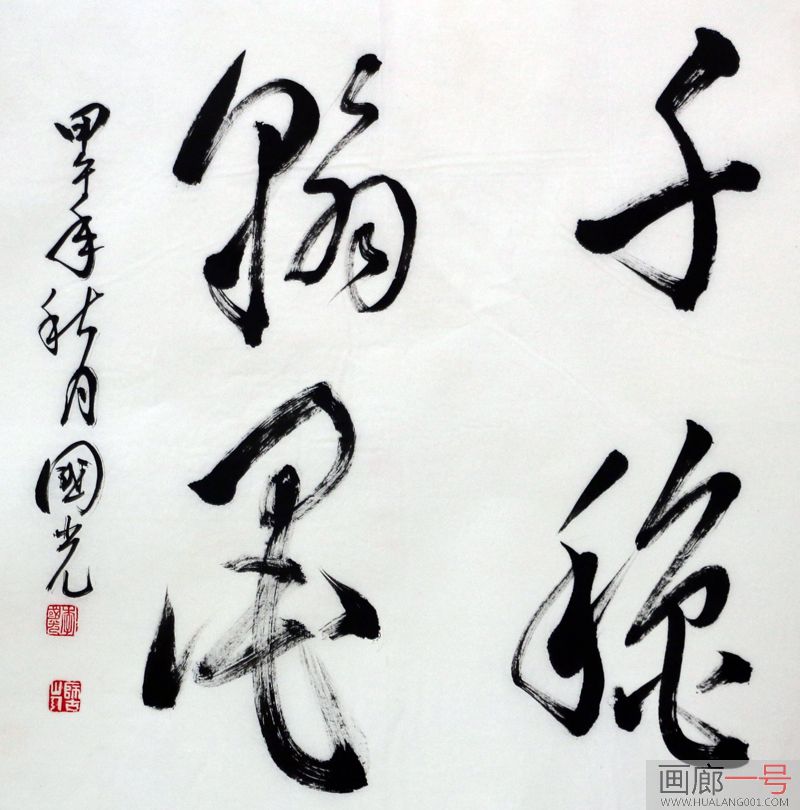 千穐
翰墨
甲午年秋月國光
画廊一号
WWW.HUALANG001.COM